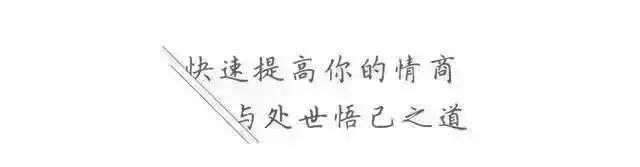 快速提高你的情商
与处世悟己之道